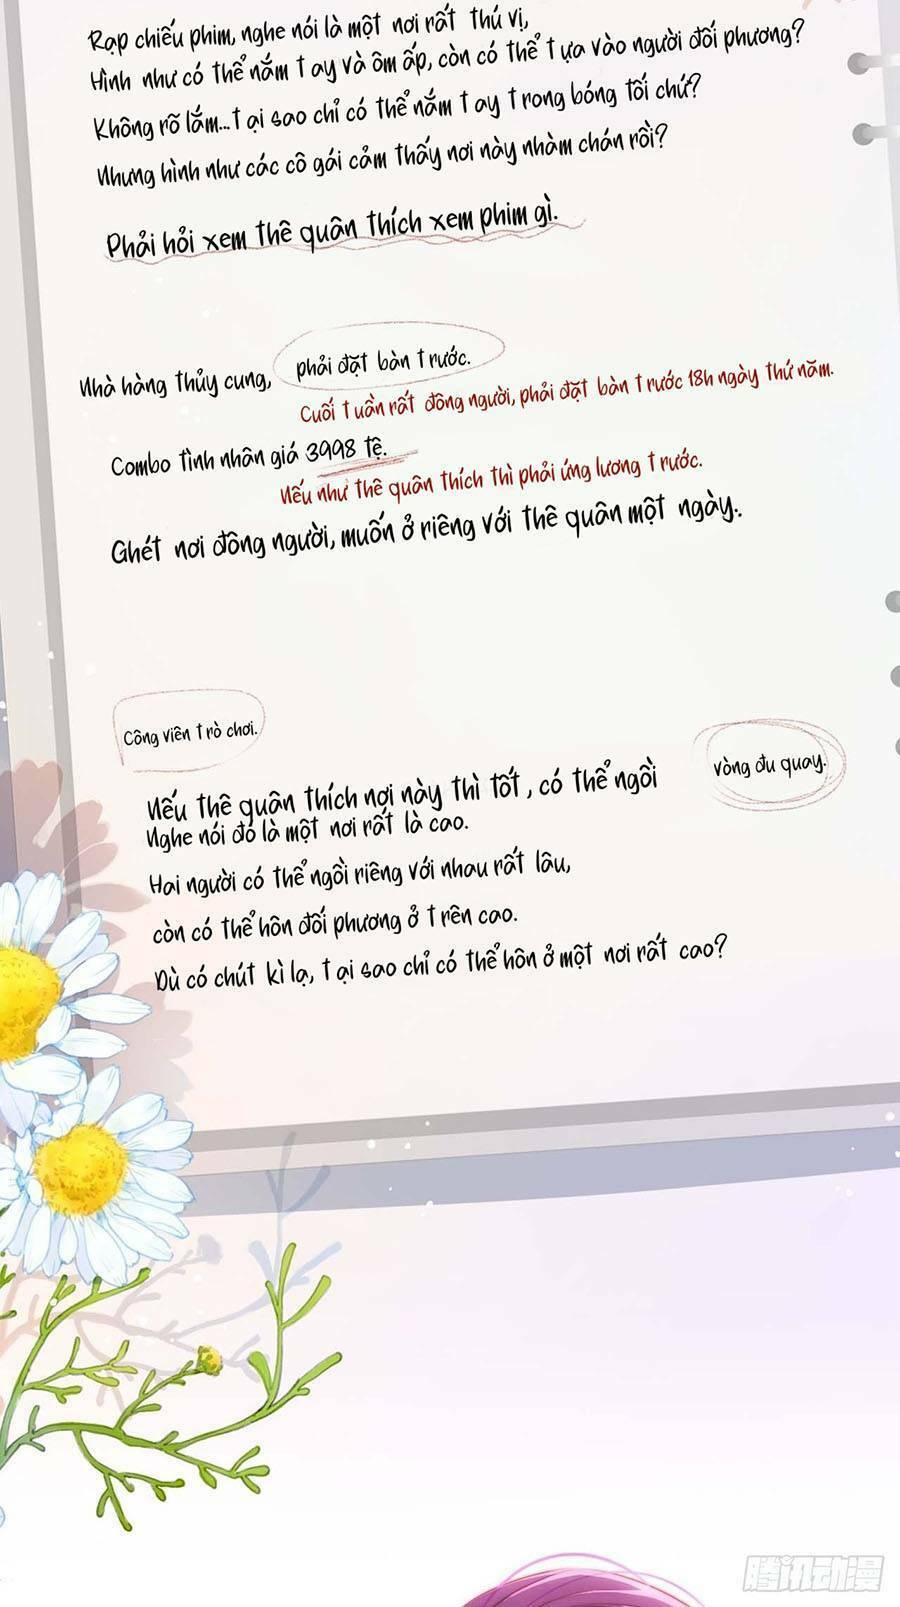 Rạp chiếu phim, nghe nói là một nơi rất thú vị,
Hình như có thể nắm tay và ôm ấp, còn có thể tựa vào người đối phương?
Không rõ lắm...tại sao chỉ có thể nắm tay trong bóng tối chứ?
Nhưng hình như các cô gái cảm thấy nơi này nhàm chán rồi?
Phải hỏi xem thê quân thích xem phim gì.
Nhà hàng thủy cung, phải đặt bàn trước.
Cuối tuần rất đông người, phải đặt bàn trước 18h ngày thứ năm.
Combo tình nhân giá 3998 tệ.
Nếu như thê quân thích thì phải ứng lương trước.
Ghét nơi đông người, muốn ở riêng với thê quân một ngày.
Công viên trò chơi.
Nếu thê quân thích nơi này thì tốt, có thể ngồi vòng đu quay.
Nghe nói đó là một nơi rất là cao.
Hai người có thể ngồi riêng với nhau rất lâu,
còn có thể hôn đối phương ở trên cao.
Dù có chút kì lạ, tại sao chỉ có thể hôn ở một nơi rất cao?
腾讯动漫